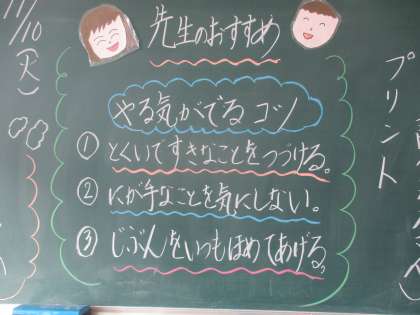 11/10(火)
先生のおすすめ
やる気がでるコツ
①とくいですきなことをつづける。
②にが手なことを気にしない。
③じぶんをいつもほめてあげる。
プリント